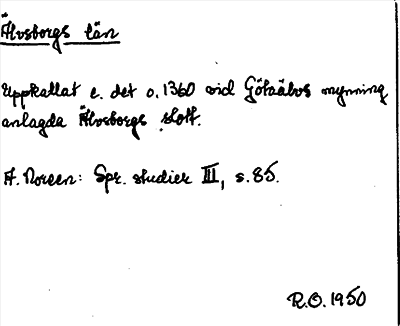 Älvsborgs län
Uppkallat e. det o. 1360 vid Götaälvs mynning
anlagda Älvsborgs slott.
A. Noreen: Spr. studier III, s. 85.
R.O. 1950